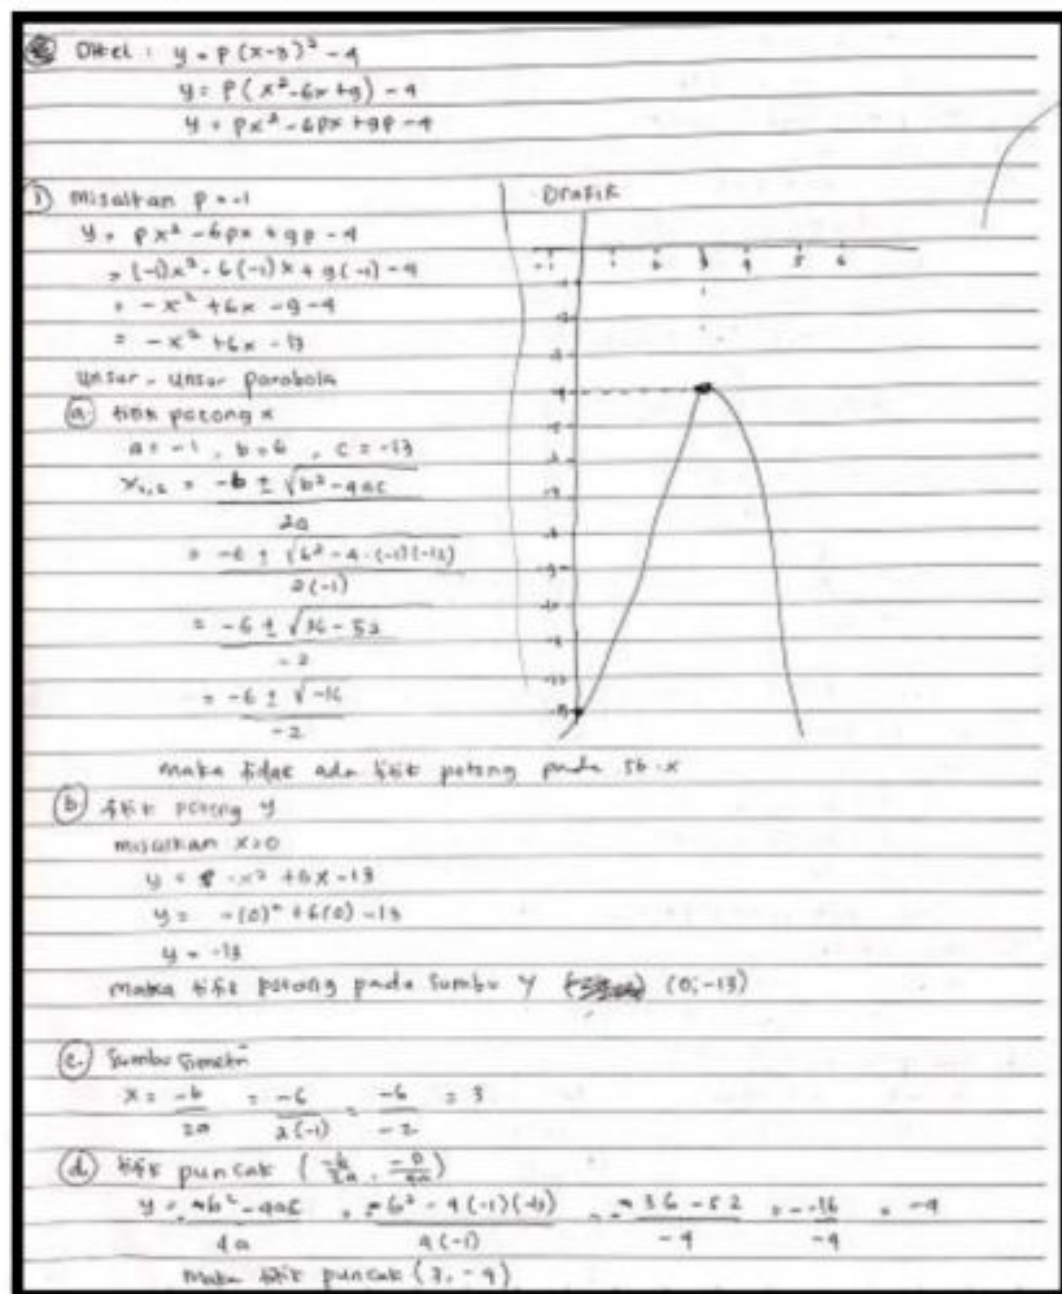 Diket : y = p(x-3)² - 4
y = p(x² - 6x + 9) - 4
y = px² - 6px + 9p - 4
① Misalkan p = -1
y = px² - 6px + 9p - 4
= (-1)x² - 6(-1)x + 9(-1) - 4
= -x² + 6x - 9 - 4
= -x² + 6x - 13
unsur - unsur parabola
ⓐ titik potong x
a = -1 , b = 6 , c = -13
x₁,₂ = -b ± √b² - 4ac
2a
= -6 ± √6² - 4 · (-1)(-13)
2(-1)
= -6 ± √36 - 52
-2
= -6 ± √-16
-2
maka tidak ada titik potong pada sb-x
Grafik
-1 1 2 3 4 5 6
-1
-2
-3
-4
-5
-6
-7
-8
-9
-10
-11
-12
-13
ⓑ titik potong y
misalkan x=0
y = -x² + 6x - 13
y = -(0)² + 6(0) - 13
y = -13
maka titik potong pada sumbu y (0,-13)
ⓒ Sumbu Simetri
x = -b/2a = -6/2(-1) = -6/-2 = 3
ⓓ titik puncak (-b/2a , -D/4a)
y = -b² - 4ac / 4a = -6² - 4(-1)(-13) / 4(-1) = -36 - 52 / -4 = --16 / -4 = -4
maka titik puncak (3, -4)